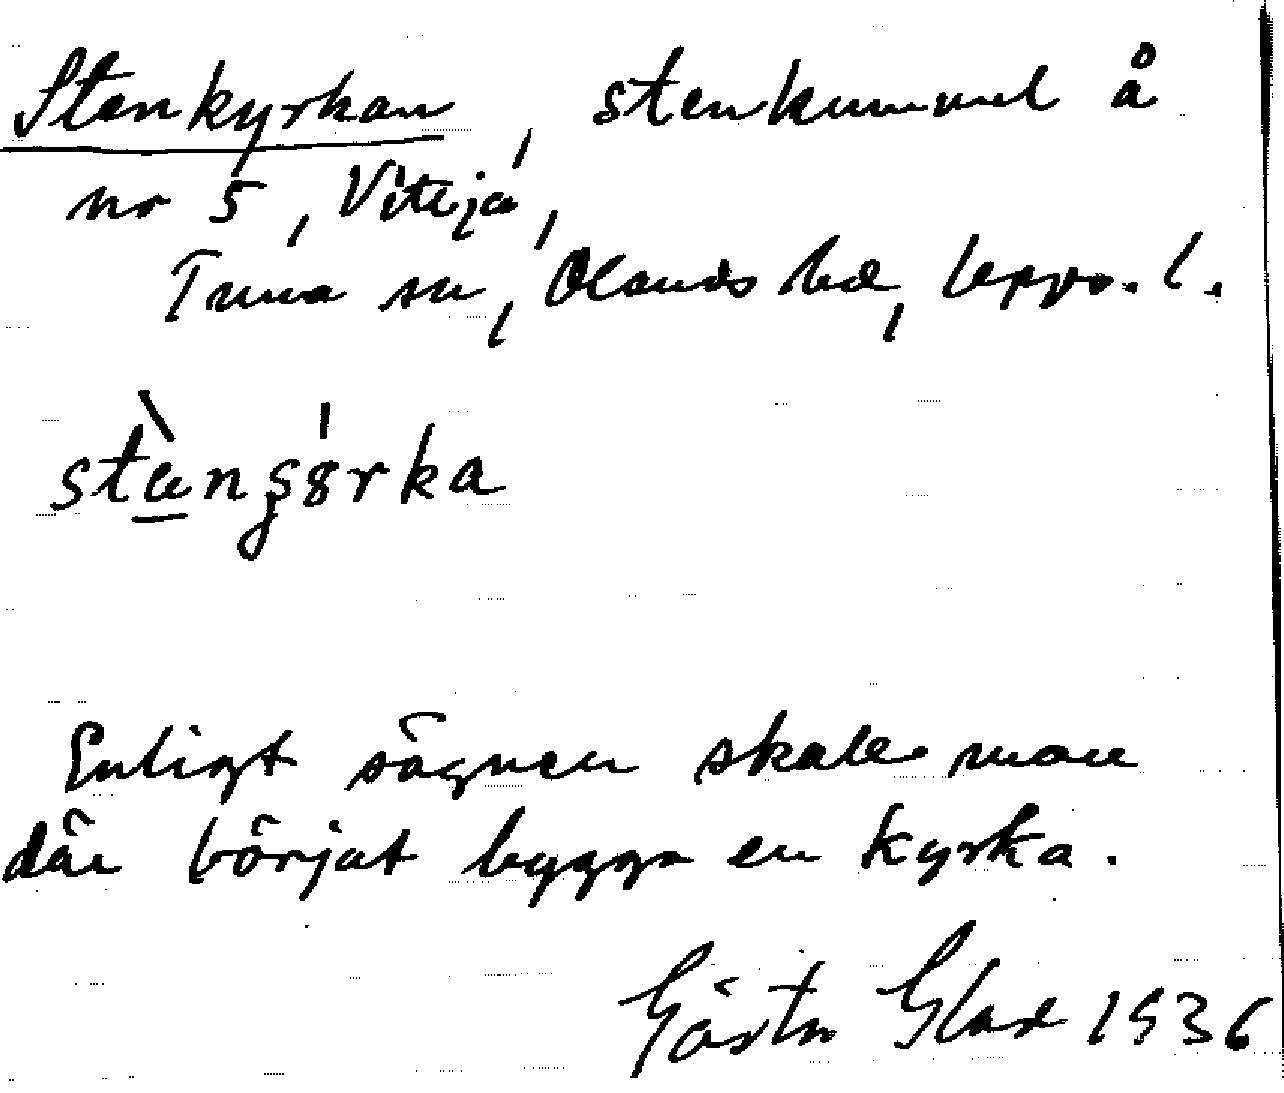 Stenkyrkan, stenkummel å
nr 5, Viteja,
Tuna sn, Olands hd, Upps. l.
stæ̀nʂɵ́rka
Enligt sägnen skall man
där börjat bygga en kyrka.
Gösta Glad 1936